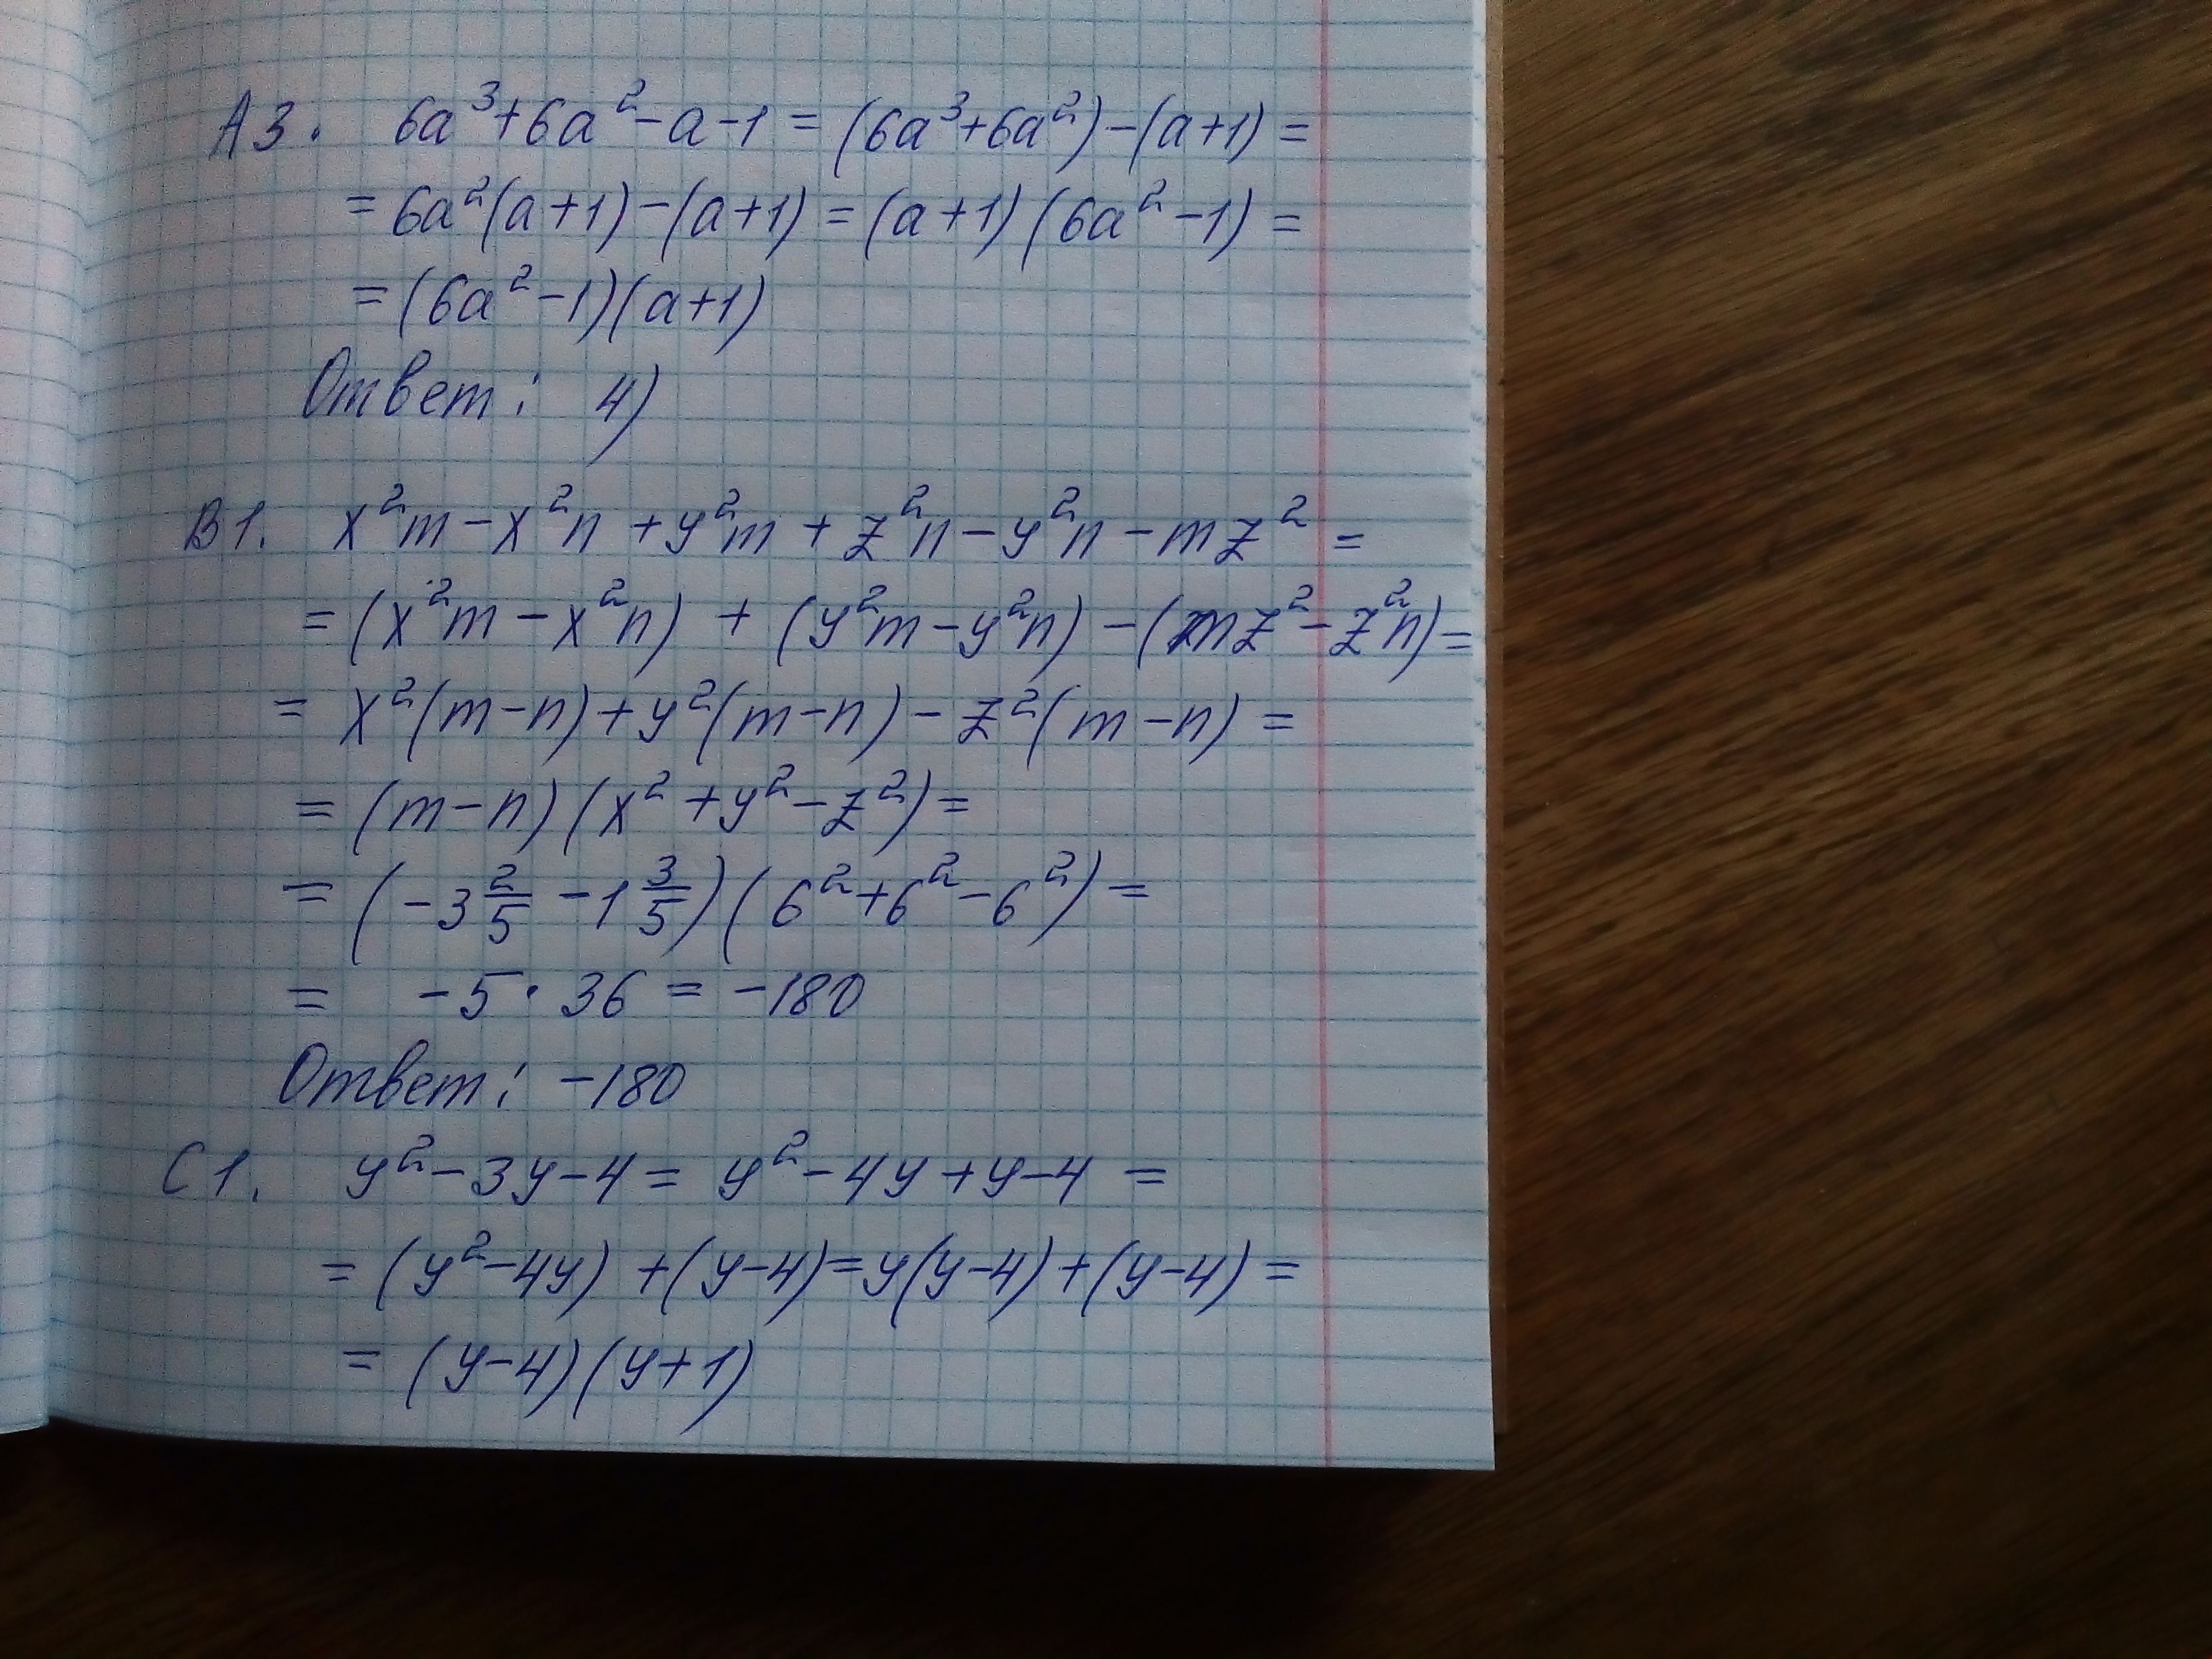 А3. 6a³+6a²-a-1=(6a³+6a²)-(a+1)=
=6a²(a+1)-(a+1)=(a+1)(6a²-1)=
=(6a²-1)(a+1)
Ответ: 4)
В1. x²m-x²n+y²m+z²n-y²n-mz²=
=(x²m-x²n)+(y²m-y²n)-(mz²-z²n)=
=x²(m-n)+y²(m-n)-z²(m-n)=
=(m-n)(x²+y²-z²)=
=(-3 2/5 -1 3/5)(6²+6²-6²)=
= -5·36=-180
Ответ: -180
С1. y²-3y-4=y²-4y+y-4=
=(y²-4y)+(y-4)=y(y-4)+(y-4)=
=(y-4)(y+1)